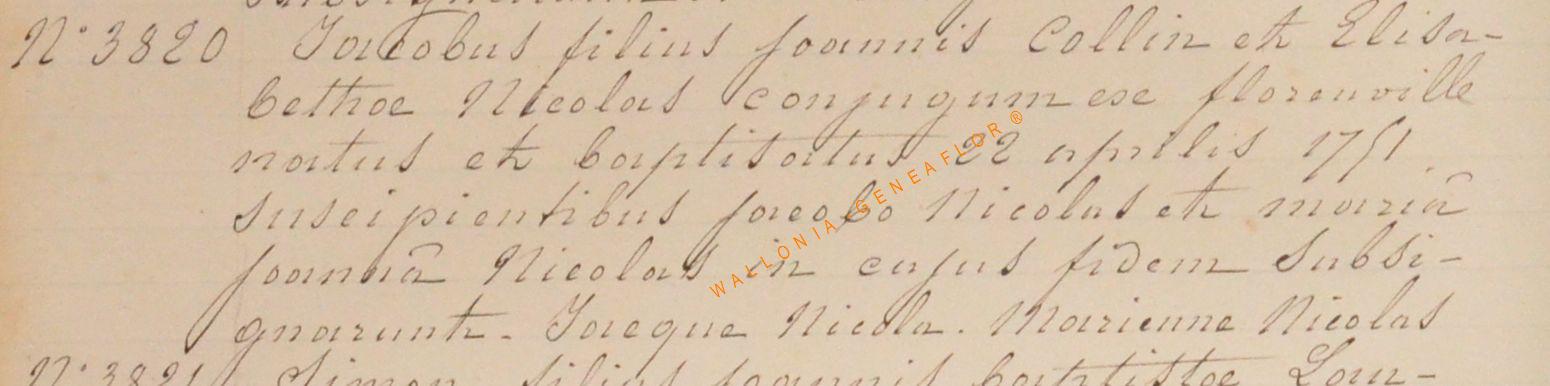 N° 3820 Jacobus filius joannis Collin et Elisa-
bethae Nicolas conjugum ex florenville
natus et baptisatus 22 aprilis 1751
suscipientibus jacobo Nicolas et mariâ
joannâ Nicolas in cujus fidem subsi-
gnarunt. Jacque Nicola. Marienne Nicolas
N° 3821 Simon filius joannis baptistae Lau-
WALLONIA GENEAFLOR ®